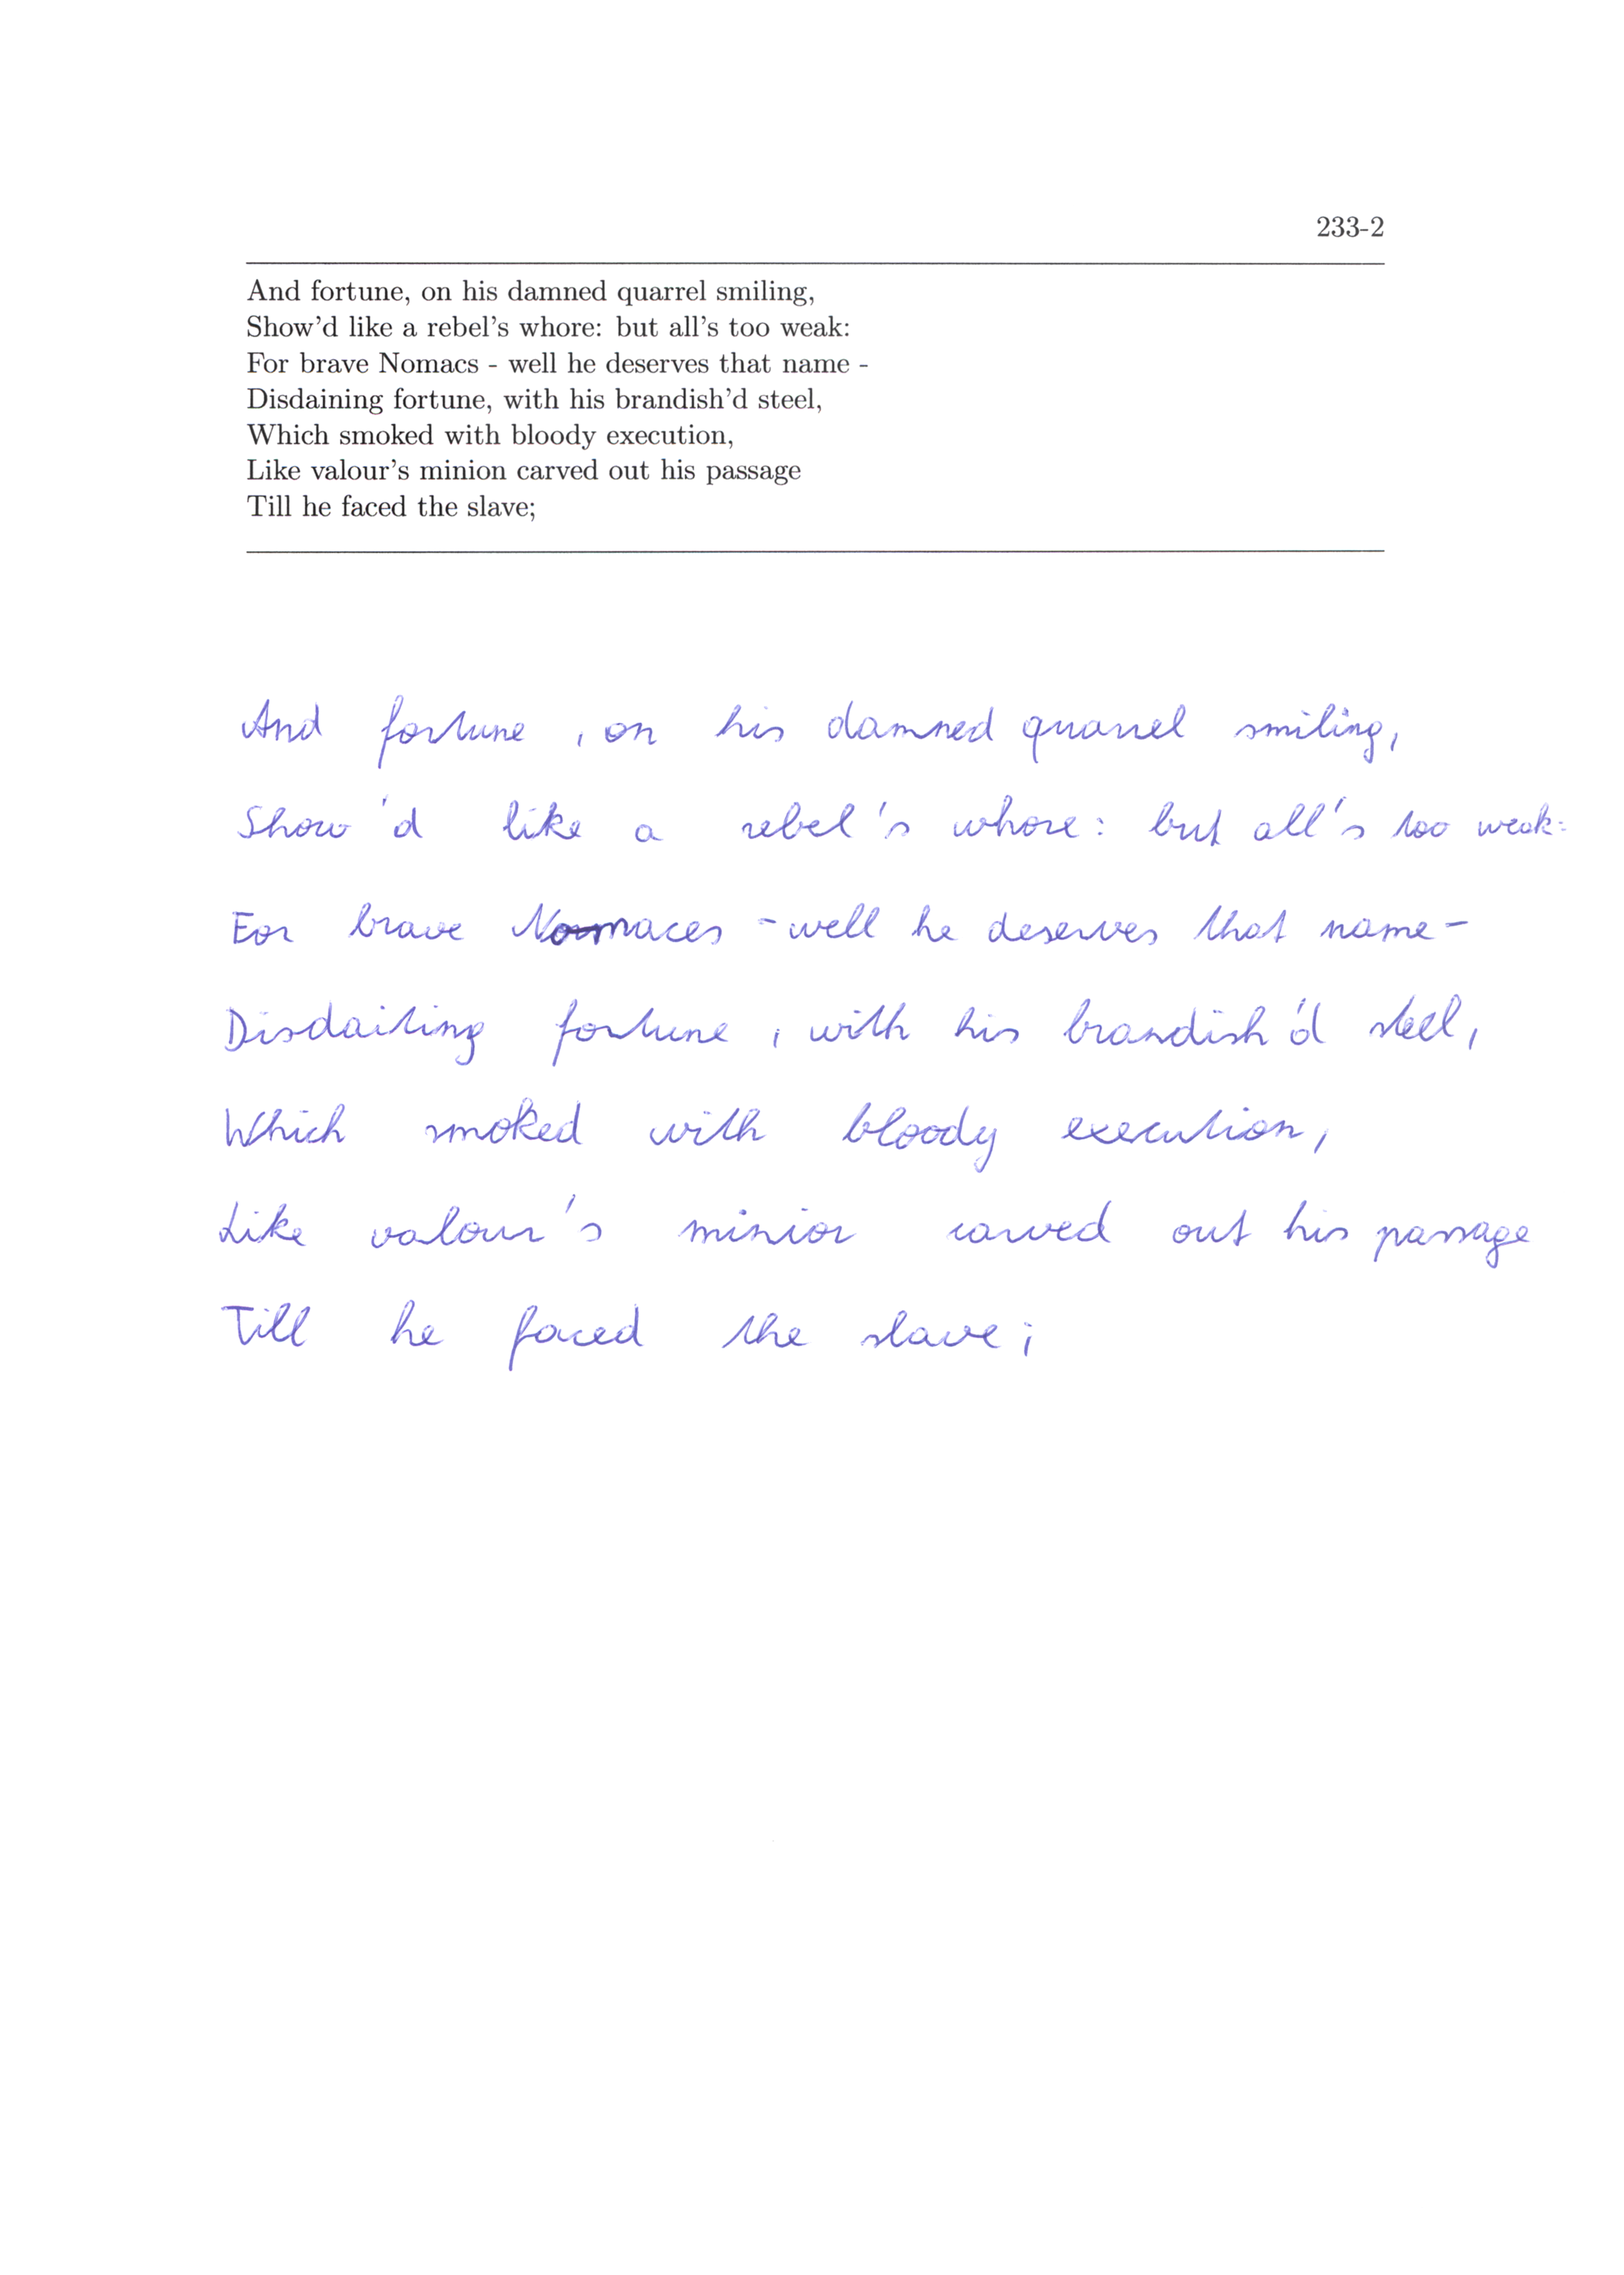 233-2
And fortune, on his damned quarrel smiling,
Show'd like a rebel's whore: but all's too weak:
For brave Nomacs - well he deserves that name -
Disdaining fortune, with his brandish'd steel,
Which smoked with bloody execution,
Like valour's minion carved out his passage
Till he faced the slave;
And fortune , on his damned quarrel smiling,
Show 'd like a rebel 's whore: but all's too weak:
For brave Nomaces - well he deserves that name -
Disdaiting fortune , with his brandish'd steel,
Which smoked with bloody execution,
Like valour's minior carved out his passage
Till he faced the slave;